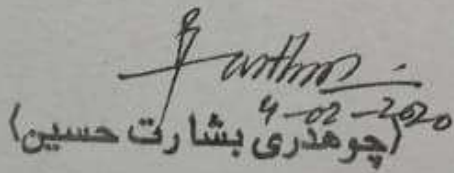 4-02-2020
(چوهدری بشارت حسین)